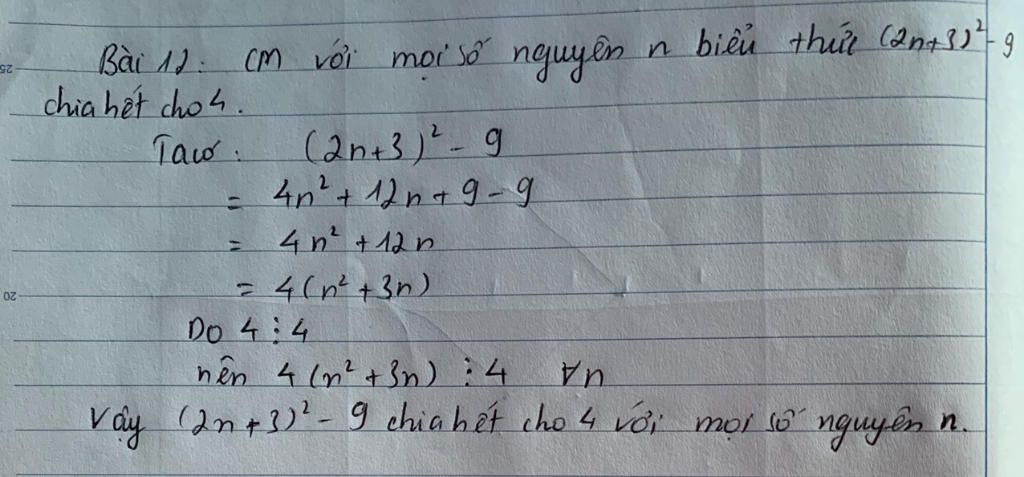 Bài 12: CM với mọi số nguyên n biểu thức (2n+3)² - 9
chia hết cho 4.
Ta có: (2n+3)² - 9
= 4n² + 12n + 9 - 9
= 4n² + 12n
= 4(n² + 3n)
Do 4 ⋮ 4
nên 4(n² + 3n) ⋮ 4 ∀n
Vậy (2n+3)² - 9 chia hết cho 4 với mọi số nguyên n.
25
20